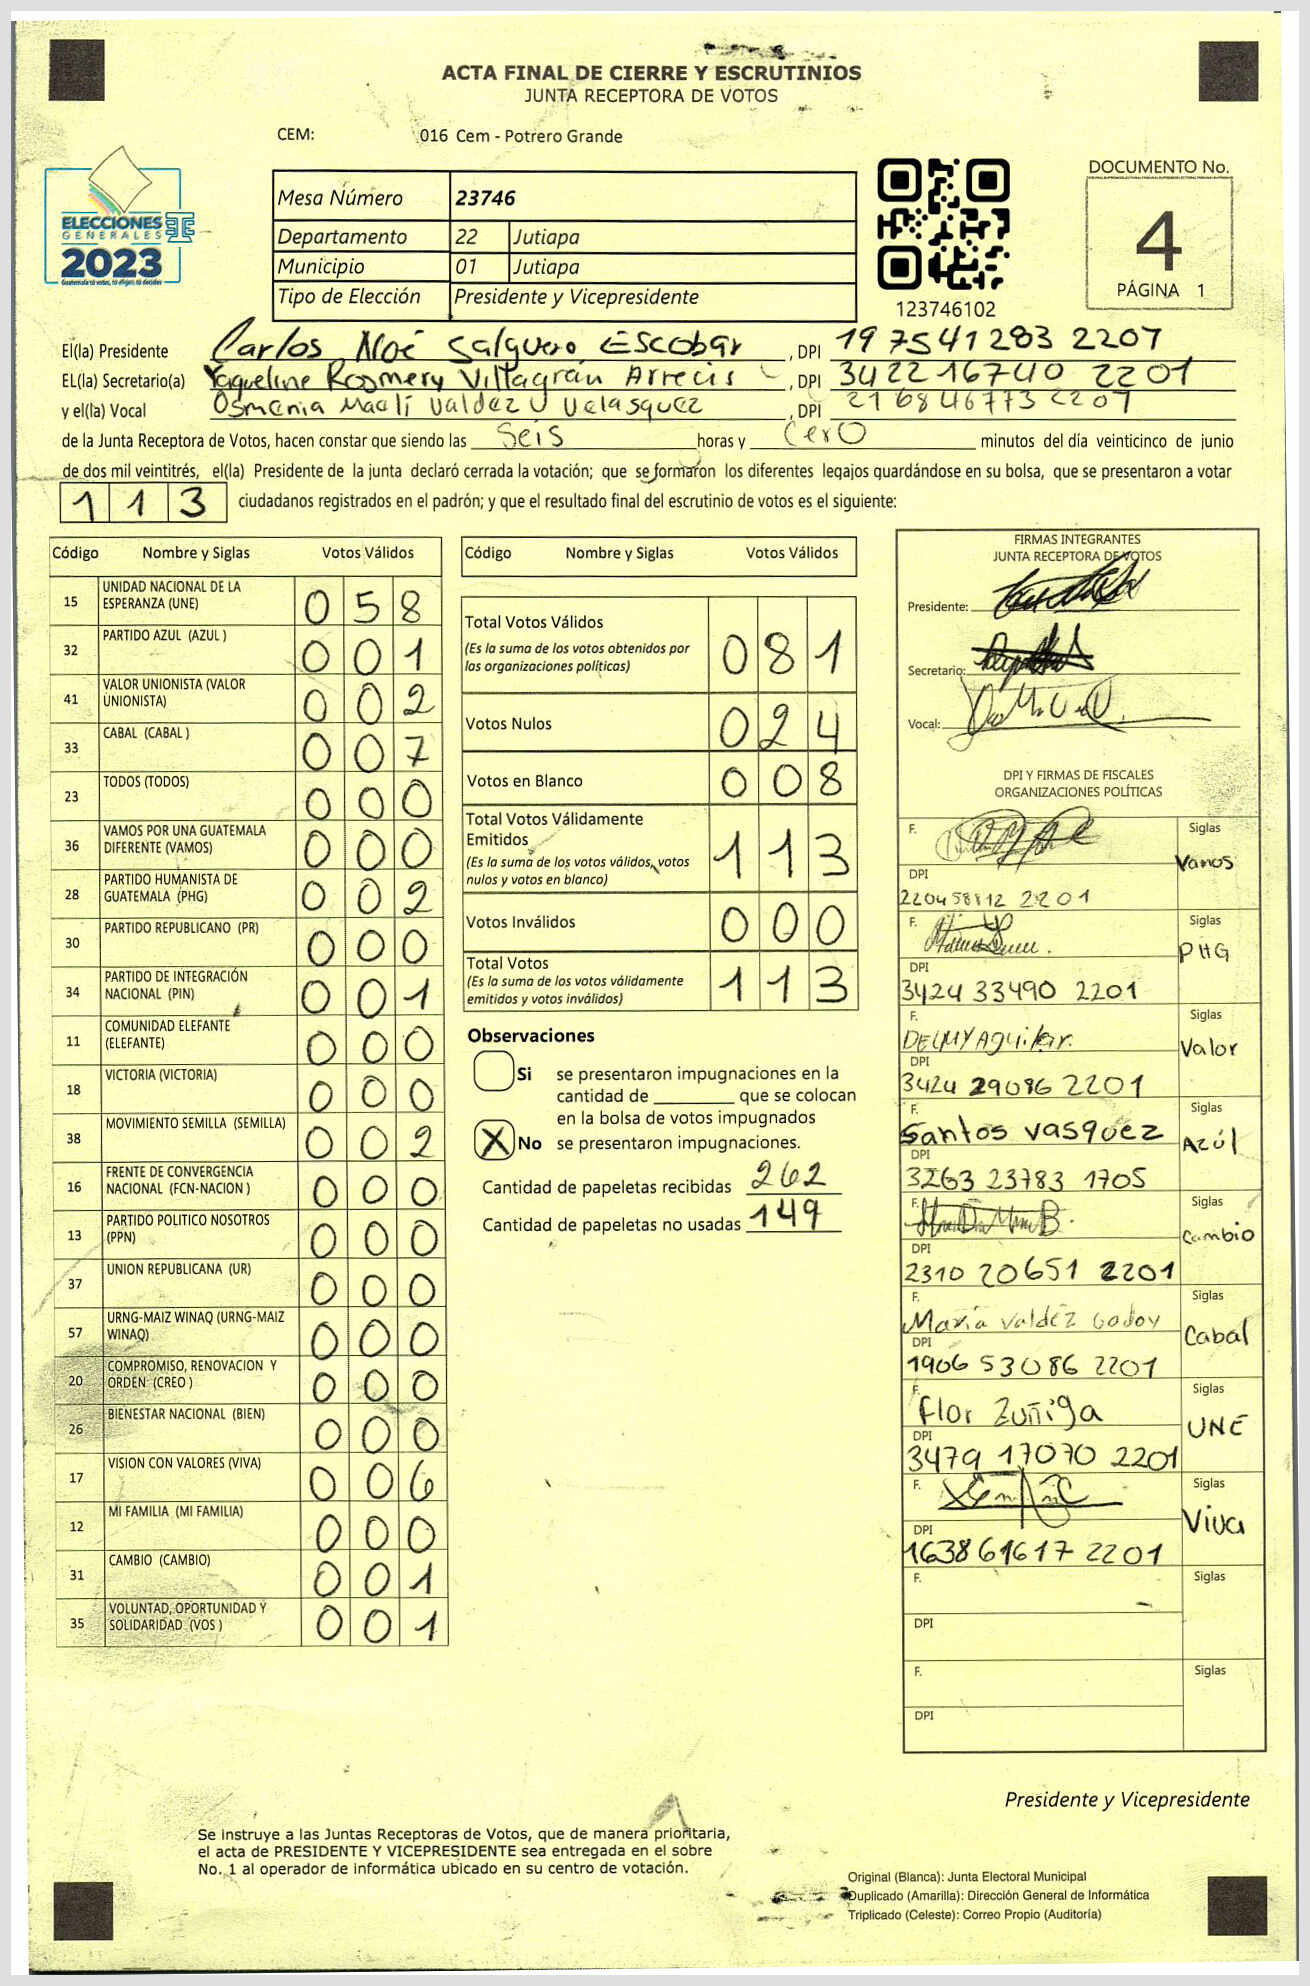 ACTA FINAL DE CIERRE Y ESCRUTINIOS
JUNTA RECEPTORA DE VOTOS
CEM: 016 Cem - Potrero Grande
ELECCIONES
GENERALES
2023
Mesa Número 23746
Departamento 22 Jutiapa
Municipio 01 Jutiapa
Tipo de Elección Presidente y Vicepresidente
123746102
DOCUMENTO No.
4
PÁGINA 1
El(la) Presidente Carlos Noé Salguero Escobar, DPI 19 7541283 2207
EL(la) Secretario(a) Yaqueline Rosmery Villagrán Arrecis, DPI 3422 16740 2201
y el(la) Vocal Osmenia Maeli Valdez y Velasquez, DPI 2168467732201
de la Junta Receptora de Votos, hacen constar que siendo las Seis horas y Cero minutos del día veinticinco de junio
de dos mil veintitrés, el(la) Presidente de la junta declaró cerrada la votación; que se formaron los diferentes legajos quardándose en su bolsa, que se presentaron a votar
113 ciudadanos registrados en el padrón; y que el resultado final del escrutinio de votos es el siguiente:
Código Nombre y Siglas Votos Válidos
15 UNIDAD NACIONAL DE LA ESPERANZA (UNE) 058
32 PARTIDO AZUL (AZUL ) 001
41 VALOR UNIONISTA (VALOR UNIONISTA) 002
33 CABAL (CABAL ) 007
23 TODOS (TODOS) 000
36 VAMOS POR UNA GUATEMALA DIFERENTE (VAMOS) 000
28 PARTIDO HUMANISTA DE GUATEMALA (PHG) 002
30 PARTIDO REPUBLICANO (PR) 000
34 PARTIDO DE INTEGRACIÓN NACIONAL (PIN) 001
11 COMUNIDAD ELEFANTE (ELEFANTE) 000
18 VICTORIA (VICTORIA) 000
38 MOVIMIENTO SEMILLA (SEMILLA) 002
16 FRENTE DE CONVERGENCIA NACIONAL (FCN-NACION ) 000
13 PARTIDO POLITICO NOSOTROS (PPN) 000
37 UNION REPUBLICANA (UR) 000
57 URNG-MAIZ WINAQ (URNG-MAIZ WINAQ) 000
20 COMPROMISO, RENOVACION Y ORDEN (CREO ) 000
26 BIENESTAR NACIONAL (BIEN) 000
17 VISION CON VALORES (VIVA) 006
12 MI FAMILIA (MI FAMILIA) 000
31 CAMBIO (CAMBIO) 001
35 VOLUNTAD, OPORTUNIDAD Y SOLIDARIDAD (VOS ) 001
Código Nombre y Siglas Votos Válidos
Total Votos Válidos 081
(Es la suma de los votos obtenidos por
las organizaciones políticas)
Votos Nulos 024
Votos en Blanco 008
Total Votos Válidamente
Emitidos 113
(Es la suma de los votos válidos, votos
nulos y votos en blanco)
Votos Inválidos 000
Total Votos 113
(Es la suma de los votos válidamente
emitidos y votos inválidos)
Observaciones
Si se presentaron impugnaciones en la
cantidad de ________ que se colocan
en la bolsa de votos impugnados
X No se presentaron impugnaciones.
Cantidad de papeletas recibidas 262
Cantidad de papeletas no usadas 149
FIRMAS INTEGRANTES
JUNTA RECEPTORA DE VOTOS
Presidente:
Secretario:
Vocal:
DPI Y FIRMAS DE FISCALES
ORGANIZACIONES POLÍTICAS
F. Siglas
Vamos
DPI
220458812 2201
F. Siglas
PHG
DPI
3424 33490 2201
F. Siglas
DELMY Aguilar. Valor
DPI
3424 29086 2201
F. Siglas
Santos Vasquez Azúl
DPI
3263 23783 1705
F. Siglas
Cambio
DPI
2310 20651 2201
F. Siglas
María Valdéz Godoy Cabal
DPI
1906 53086 2201
F. Siglas
Flor Zuñiga UNE
DPI
3479 17070 2201
F. Siglas
Viva
DPI
1638 61617 2201
F. Siglas
DPI
F. Siglas
DPI
Presidente y Vicepresidente
Se instruye a las Juntas Receptoras de Votos, que de manera prioritaria,
el acta de PRESIDENTE Y VICEPRESIDENTE sea entregada en el sobre
No. 1 al operador de informática ubicado en su centro de votación.
Original (Blanca): Junta Electoral Municipal
Duplicado (Amarilla): Dirección General de Informática
Triplicado (Celeste): Correo Propio (Auditoría)